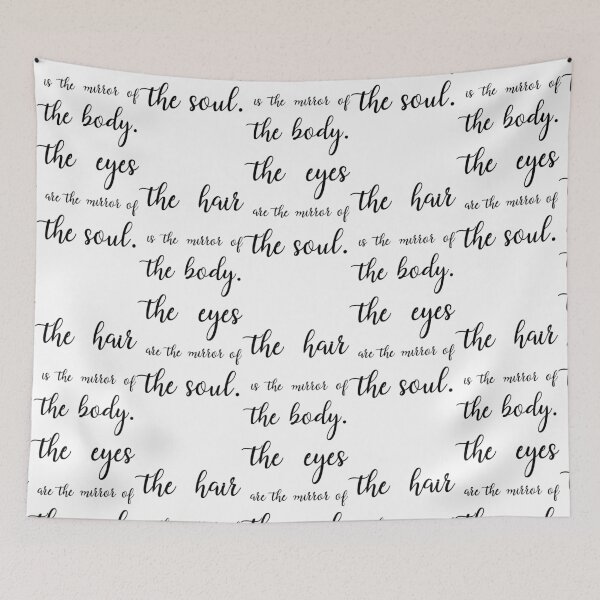 is the mirror of the soul. is the mirror of the soul. is the mirror of
the body. the body. the body.
the eyes the eyes the eyes
are the mirror of the hair are the mirror of the hair are the mirror of
the soul. is the mirror of the soul. is the mirror of the soul.
the body. the body.
the eyes the eyes
the hair are the mirror of the hair are the mirror of the hair
is the mirror of the soul. is the mirror of the soul. is the mirror of
the body. the body. the body.
the eyes the eyes the eyes
are the mirror of the hair are the mirror of the hair are the mirror of